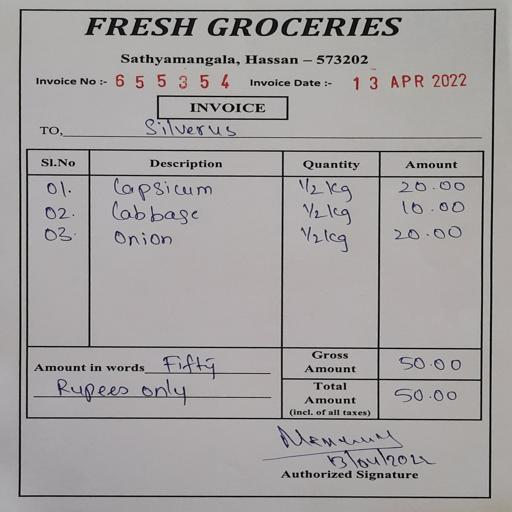 FRESH GROCERIES
Sathyamangala, Hassan – 573202
Invoice No :- 655354 Invoice Date :- 13 APR 2022
INVOICE
TO, Silverus
Sl.No Description Quantity Amount
01. Capsicum 1/2 kg 20.00
02. Cabbage 1/2 kg 10.00
03. Onion 1/2 kg 20.00
Amount in words Fifty
Rupees only
Gross Amount 50.00
Total Amount (incl. of all taxes) 50.00
13/04/2022
Authorized Signature